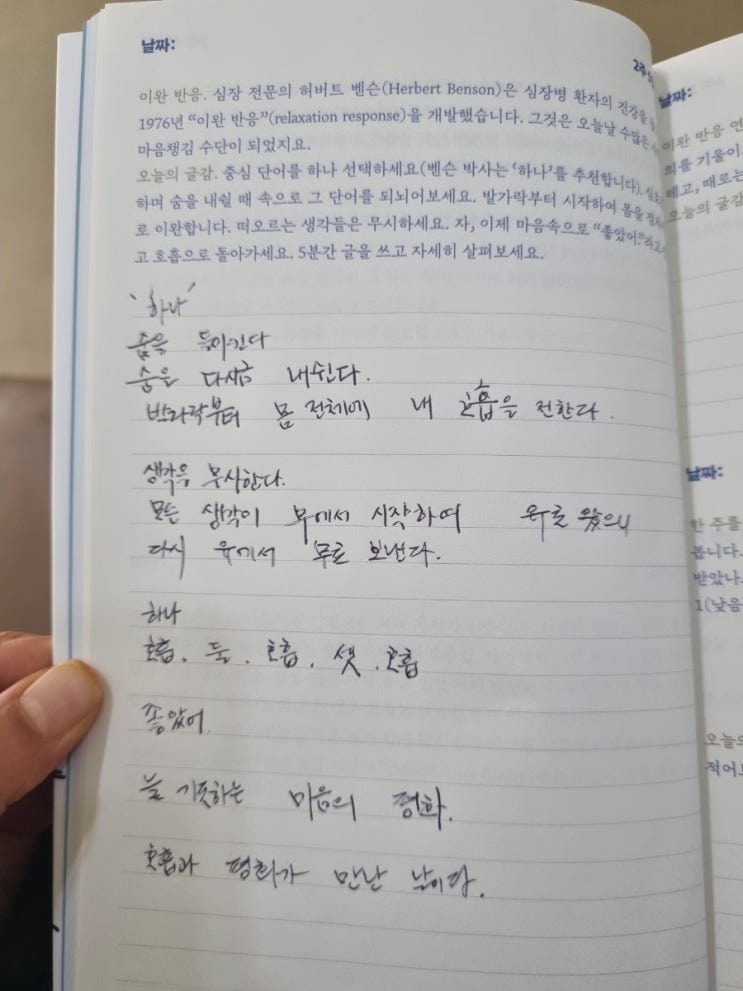 날짜:
2주
이완 반응. 심장 전문의 허버트 벤슨(Herbert Benson)은 심장병 환자의 건강을
1976년 “이완 반응”(relaxation response)을 개발했습니다. 그것은 오늘날 수많은
마음챙김 수단이 되었지요.
오늘의 글감. 중심 단어를 하나 선택하세요(벤슨 박사는 ‘하나’를 추천합니다).
하며 숨을 내쉴 때 속으로 그 단어를 되뇌어보세요. 발가락부터 시작하여 몸을
로 이완합니다. 떠오르는 생각들은 무시하세요. 자, 이제 마음속으로 “좋았어.”라고
고 호흡으로 돌아가세요. 5분간 글을 쓰고 자세히 살펴보세요.
‘하나’
숨을 들이킨다
숨을 다시금 내쉰다.
발가락부터 몸 전체에 내 호흡을 전한다.
생각을 무시한다.
모든 생각이 무에서 시작하여 유로 왔으니
다시 유에서 무로 보낸다.
하나
호흡. 둘. 호흡. 셋. 호흡
좋았어.
늘 기웃하는 마음의 평화.
호흡과 평화가 만난 날이다.
날짜:
이완 반응 연
의를 기울이
테고, 때로는
오늘의 글감
날짜:
한 주를
봅니다.
받았나
1(낮음
오늘의
적어보